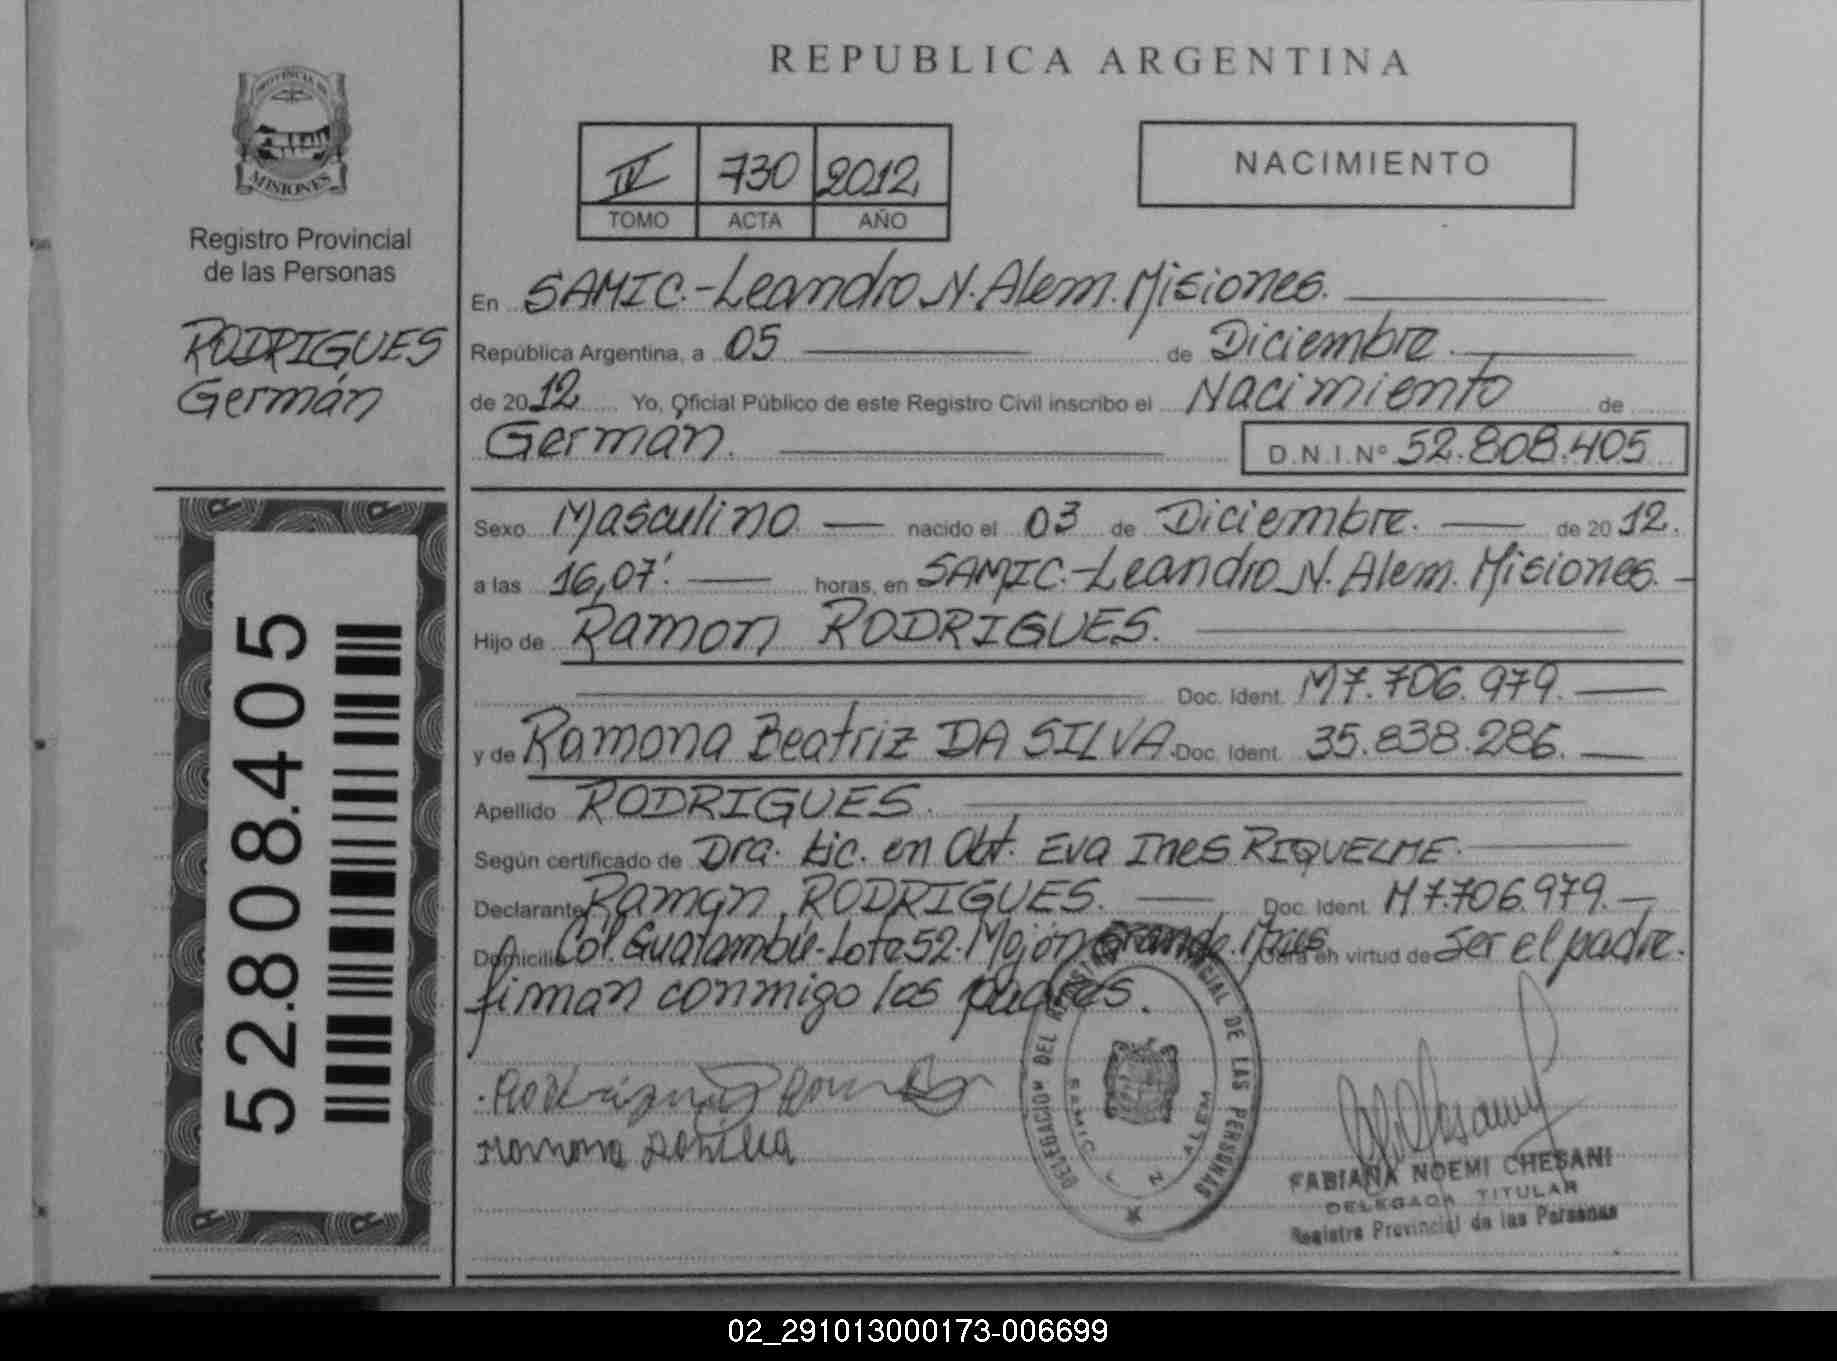 REPUBLICA ARGENTINA
PROVINCIA DE
MISIONES
Registro Provincial
de las Personas
RODRIGUES
Germán
IV 730 2012
TOMO ACTA AÑO
NACIMIENTO
En SAMIC.-Leandro N. Alem. Misiones.
República Argentina, a 05 de Diciembre.
de 2012 Yo, Oficial Público de este Registro Civil inscribo el Nacimiento de
Germán. D.N.I.Nº 52.808.405
Sexo Masculino. nacido el 03 de Diciembre. de 2012.
a las 16,07'. horas, en SAMIC.-Leandro N. Alem. Misiones.
Hijo de Ramon RODRIGUES.
Doc. Ident. M7.706.979.
y de Ramona Beatriz DA SILVA. Doc. Ident. 35.838.286.
Apellido RODRIGUES.
Según certificado de Dra. Lic. en Obt. Eva Ines RIQUELME.
Declarante Ramon RODRIGUES. Doc. Ident. M7.706.979.
Domicilio Col. Guatambú-Lote 52. Mojón Grande. en virtud de ser el padre.
firman conmigo los padres.
52.808.405
DELEGACION DEL REGISTRO PROVINCIAL DE LAS PERSONAS
SAMIC L N ALEM
FABIANA NOEMI CHESANI
DELEGADA TITULAR
Registro Provincial de las Personas
02_291013000173-006699